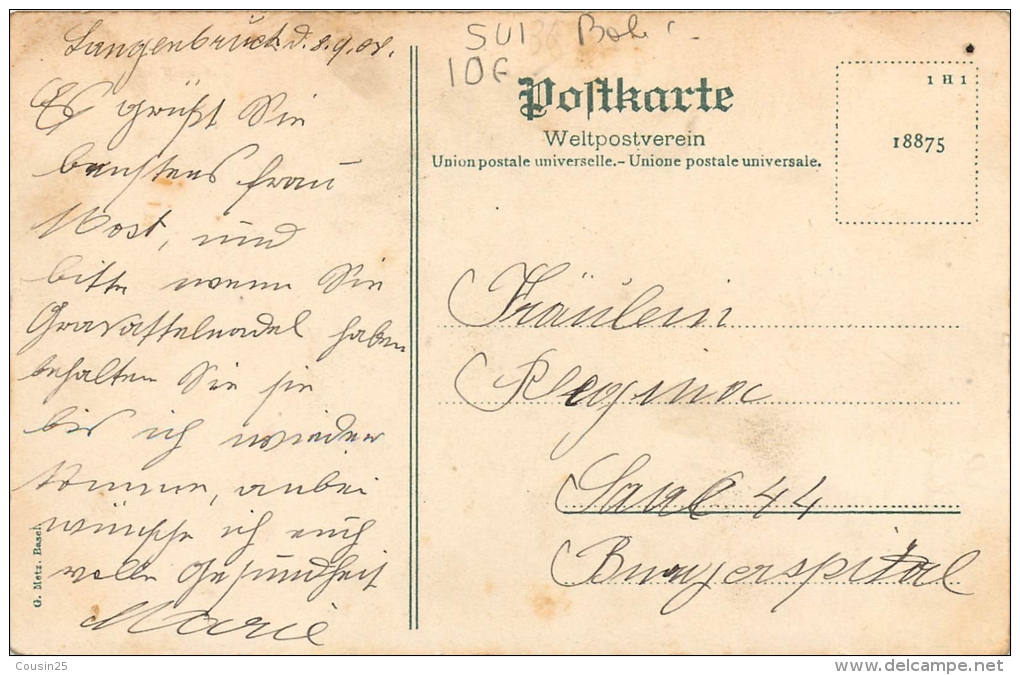 Langenbruck d. 8.9.08.
Es grüßt Sie
bestens Frau
Most, und
bitte wenn Sie
haben
behalten Sie sie
bis ich wieder
komme, anbei
wünsche ich euch
volle Gesundheit
Marie
G. Metz. Basel
SUI
10€
Postkarte
Weltpostverein
Union postale universelle.- Unione postale universale.
1 H 1
18875
Fräulein
Regina
Saal 44
Burgerspital
Cousin25
delcampe.net